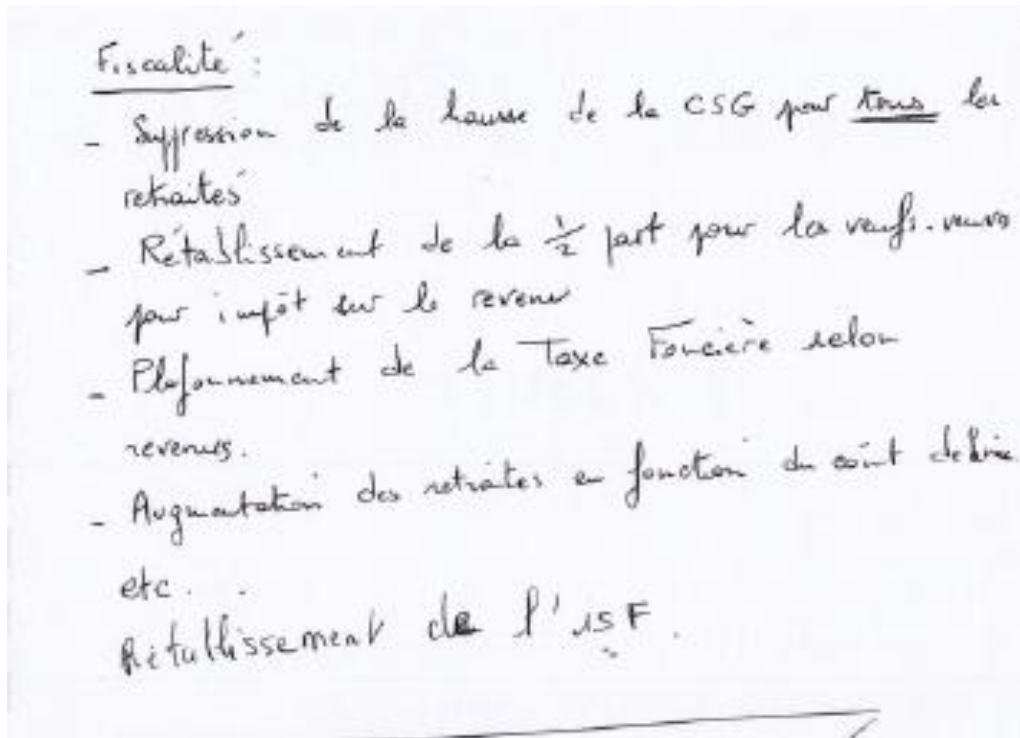 Fiscalité :
- Suppression de la hausse de la CSG pour tous les
retraités
- Rétablissement de la ½ part pour les veufs. veuves
pour impôt sur le revenu
- Plafonnement de la Taxe Foncière selon
revenus.
- Augmentation des retraites en fonction du coût de la vie
etc. .
Rétablissement de l'ISF.